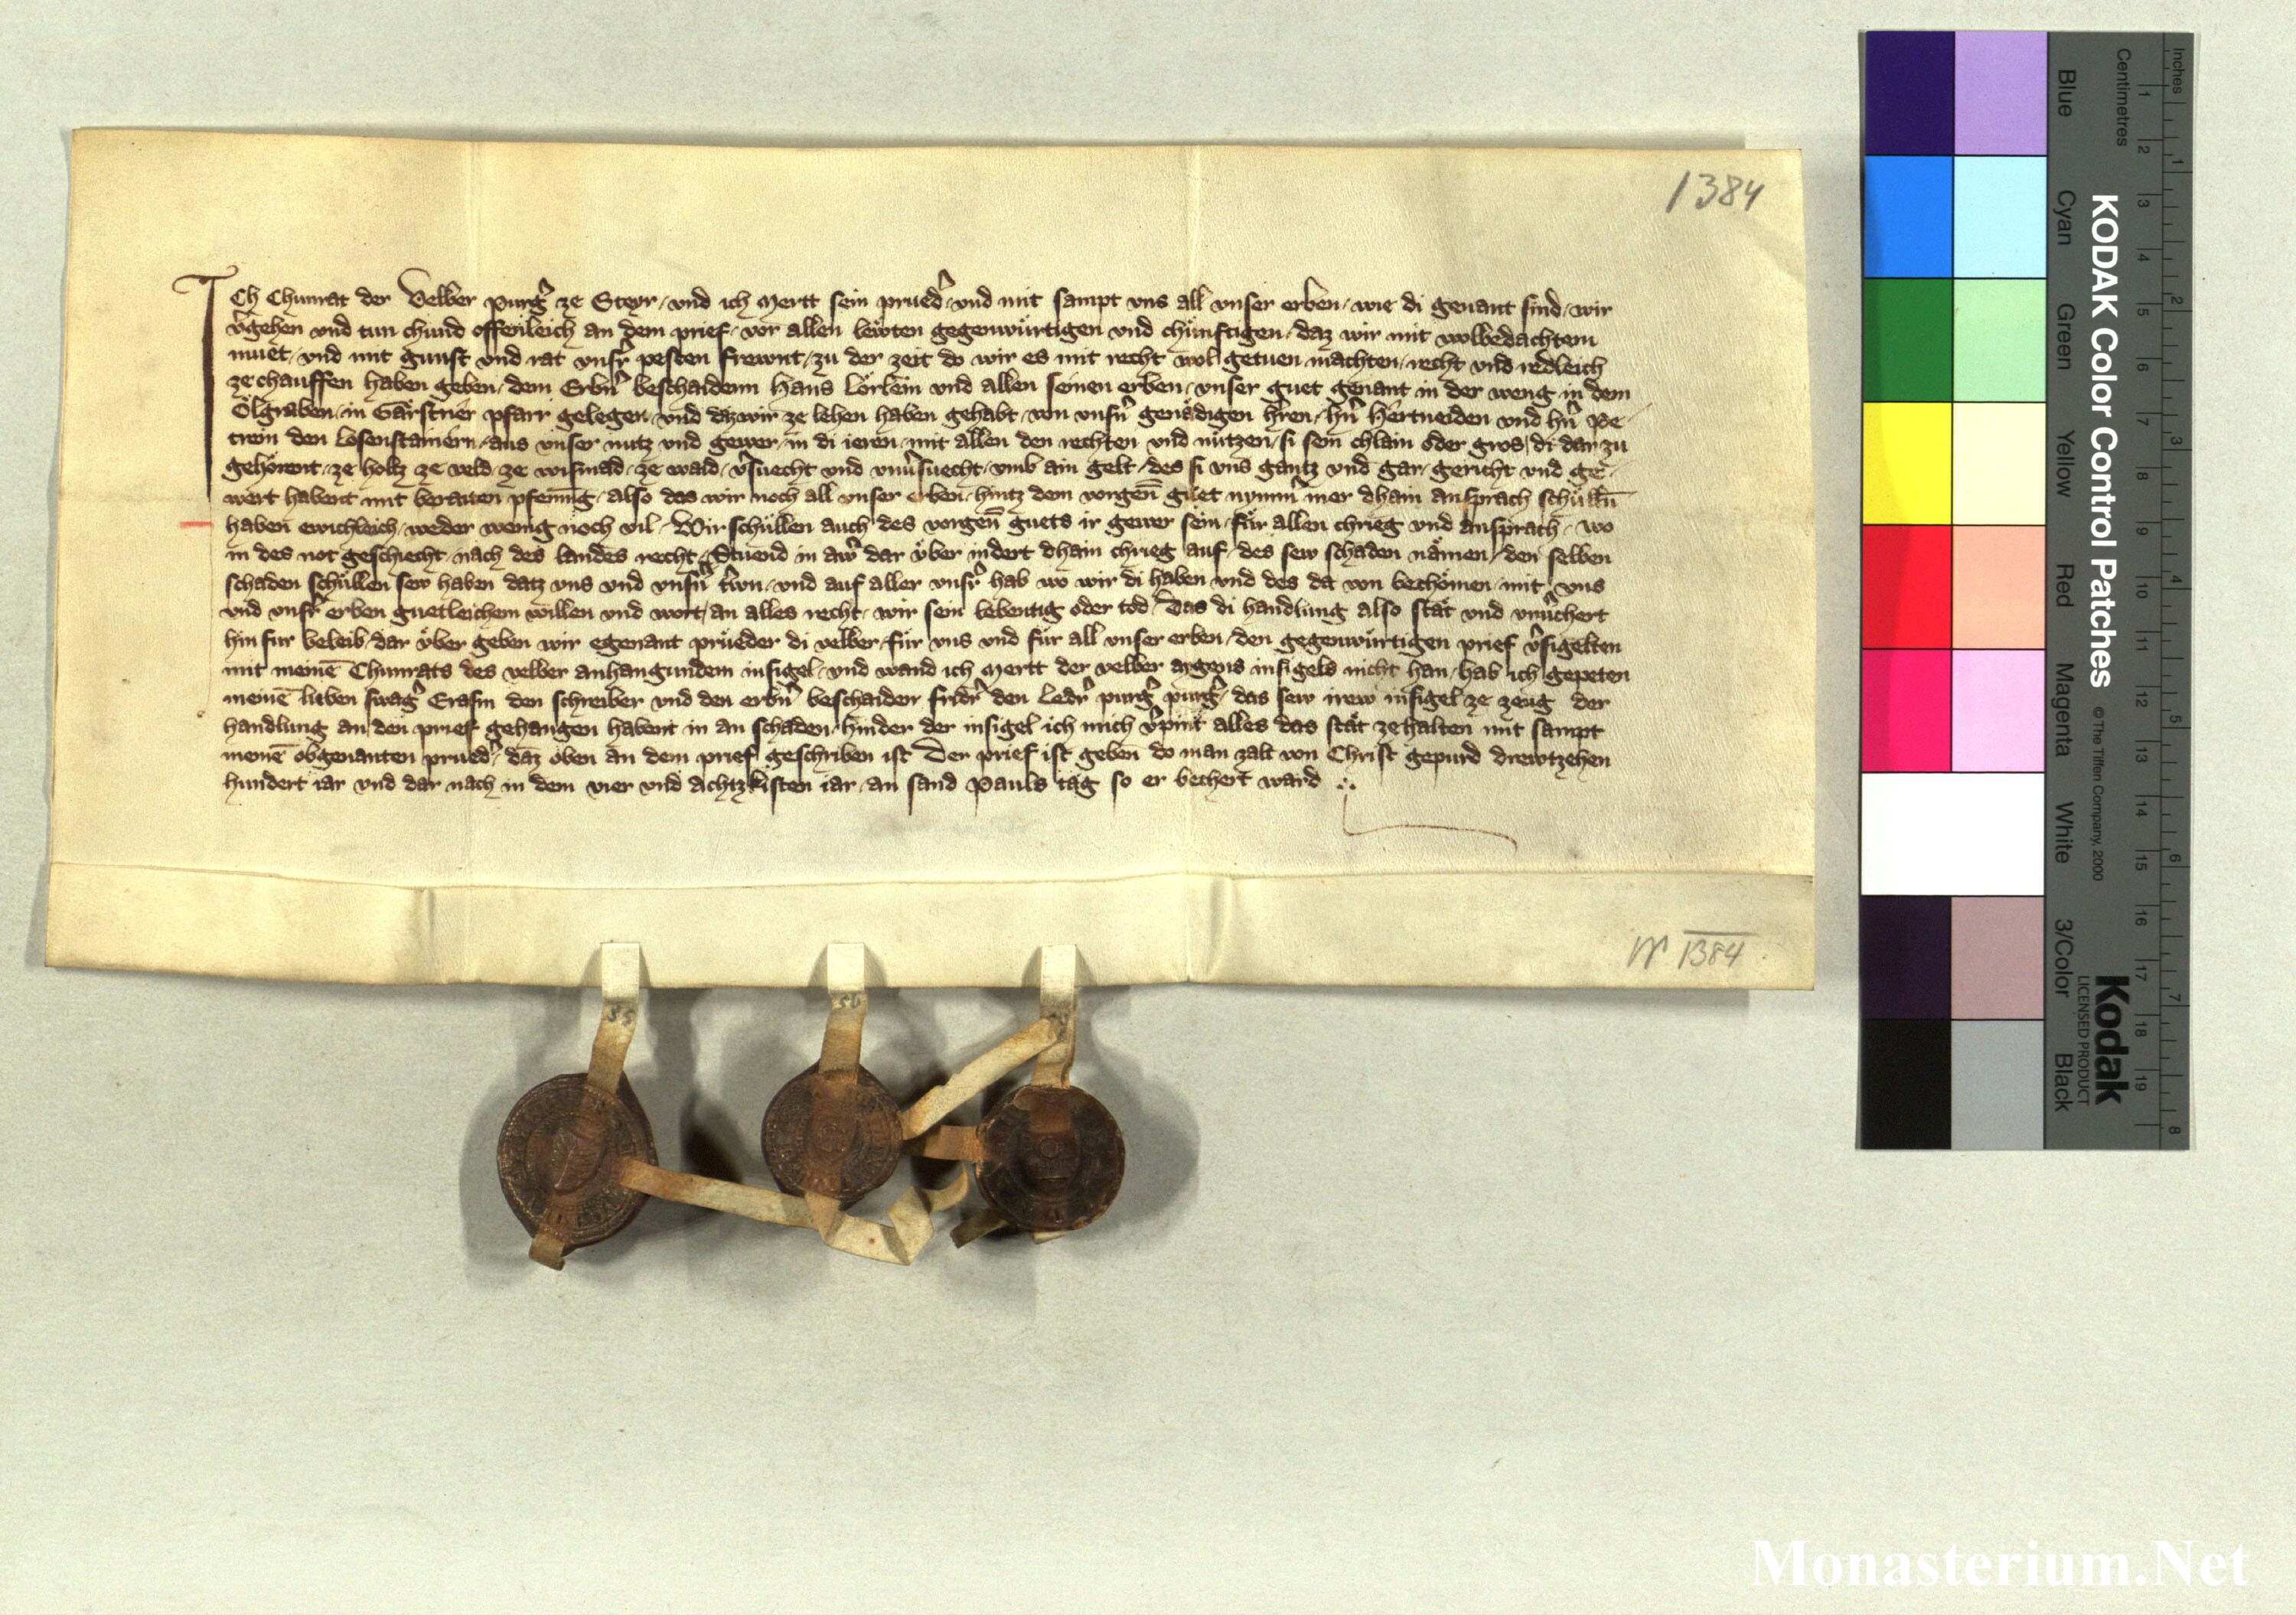 1384
Ich Chunrat der Velber purg̉ ze Steyr / vnd ich Mertt sein prued̉ / vnd mit sampt vns all vnser erben / wie di genant sind / wir
v̉gehen vnd tun chund offenleich an dem prief / vor allen lewten gegenwürtigen vnd chünftigen / daz wir mit wolbedachtem
muet / vnd mit gunst vnd rat vnsr̉ pesten frewnt / zu der zeit do wir es mit recht wol getuen machten / recht vnd redleich
ze chauffen haben geben / dem Erbn̉ beschaidenn Hans Lörlein vnd allen seinen erben / vnser guet genant in der weng in dem
Ölgraben / in Gärstner pfarr gelegen / vnd daz wir ze lehen haben gehabt / von vnsn̉ genädigen hren / hn̉ Hertneiden vnd hn̉ Pe-
trein den Losenstainern / aus vnser nutz vnd gewer / in di ieren / mit allen den rechten vnd nützen / si sein chlain oder gros / di dar zu
gehörent / ze holtz ze veld / ze wismad / ze wald / v̉suecht vnd vnv̉suecht / vmb ain gelt / des si vns gantz vnd gar / gericht vnd ge-
wert habent mit beraiten pfenning / also das wir noch all vnser erben / hintz dem vorgen̄ guet nymm̉ mer dhain ansprach schülln̄
haben ewichleich / weder wenig noch vil / Wir schüllen auch des vorgen̄ guets ir gewer sein / für allen chrieg vnd ansprach / wo
in des not geschiecht / nach des landes recht / Stuend in aw̉ dar über indert dhain chrieg auf / des sew schaden nämen / den selben
schaden schüllen sew haben datz vns vnd vnsn̉ tr̉wn / vnd auf aller vnsr̉ hab wo wir di haben vnd des da von bechömen / mit vns
vnd vnsr̉ erben guetleichem willen vnd wort / an alles recht / wir sein lebentig oder tod / Das di handlung also stät vnd vnv̉chert
hin fur beleib / dar über geben wir egenant prüeder di velber / für vns vnd für all vnser erben / den gegenwürtigen prief v̉sigelten
mit meinē Chunrats des velber anhangundem insigel / vnd wand ich Mertt der velber aygens insigels nicht han / hab ich gepeten
meinē lieben swag̉ Erasm den schreiber vnd den erbn̉ beschaiden fridr̉ den Ledr̉ purg̉ purg̉ / das sew irew insigel ze zeug der
handlung an den prief gehangen habent in an schaden / hinder der insigel ich mich v̉pint alles das stät ze halten mit sampt
meinē obgenanten prued̉ / daz oben an dem prief geschriben ist Der prief ist geben do man zalt von Christ gepurd drewtzehen
hundert iar vnd dar nach in dem vier vnd achtzkisten iar / an sand Pauls tag so er bechert ward
1384
55
56
Inches
Centimetres
KODAK Color Control Patches
© The Tiffen Company, 2000
Kodak
LICENSED PRODUCT
Blue Cyan Green Yellow Red Magenta White 3/Color Black
1 2 3 4 5 6 7 8 9 10 11 12 13 14 15 16 17 18 19
1 2 3 4 5 6 7 8
Monasterium.Net